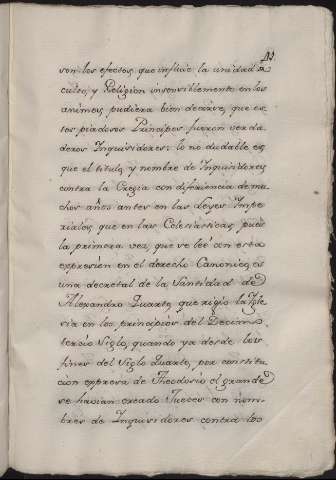 son los efectos, que influie la unidad de
culto, y Religion insensiblemente en los
animos, pudiera bien decirse, que es
tos piadosos Principes fueron verda
deros Inquisidores: lo no dudable es,
que el titulo, y nombre de Inquisidores
contra la Eregia con diferiencia de mu
chos años antes en las Leyes Impe
riales, que en las Eclesiasticas, pues
la primera vez, que se leé con esta
expresion en el derecho Canonico, es
una decretal de la Santidad de
Alexandro Quarto, que rigió la Igle
sia en los principios del Decimo
tercio Siglo, quando ya desde los
fines del Siglo Quarto, por constitu
cion expresa de Theodosio el grande
se havian creado Jueces con nom
bres de Inquisidores contra los